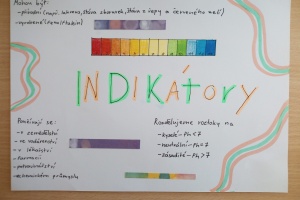 Mohou být:
-přírodní (např. lakmus, šťáva z borůvek, šťáva z řepy a červeného zelí)
INDIKÁTORY
Používají se:
- v zemědělství
- ve vodárenství
- v lékařství
- farmacii
- potravinářství
- chemickém průmyslu
Rozdělujeme roztoky na
-kyselé - pH < 7
-neutrální - pH = 7
-zásadité - pH > 7